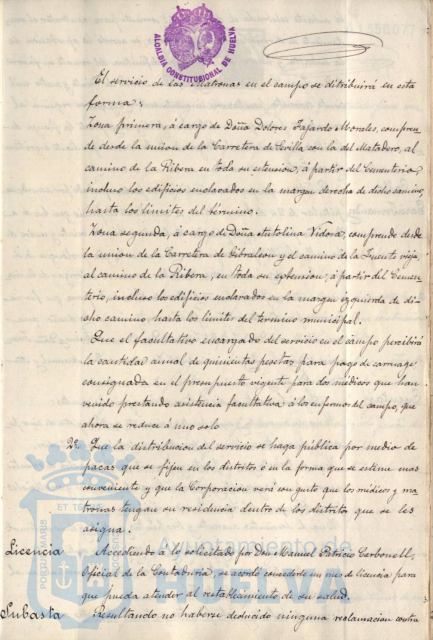 ALCALDIA CONSTITUCIONAL DE HUELVA
El servicio de las Matronas en el campo se ditribuirá en esta
forma:
Zona primera, á cargo de Doña Dolores Fajardo Morales, compren
de desde la union de la Carretera de Sevilla con la del Matadero, al
camino de la Ribera en toda su estension, á partir del Cementerio
incluso los edificios enclavados en la margen derecha de dicho camino,
hasta los limites del término.
Zona segunda, á cargo de Doña Antolina Vidosa, comprende desde
la union de la Carretera de Gibraleon y el camino de la Fuente vieja,
al camino de la Ribera, en toda su extension, á partir del Cemen
terio, incluso los edificios enclavados en la margen izquierda de di-
cho camino, hasta los limites del termino municipal.
Que el facultativo encargado del servicio en el campo percibirá
la cantidad anual de quinientas pesetas para pago de carruage
consignada en el presupuesto vigente para dos médicos que han
venido prestando asistencia facultativa á los enfermos del campo, que
ahora se reduce á uno solo
2º Que la distribucion del servicio se haga pública por medio de
pacas que se fijen en los distritos ó en la forma que se estime mas
conveniente y que la Corporacion verá con gusto que los médicos y ma
tronas tengan su residencia dentro de los distritos que se les
asigna.
Licencia Accediendo á lo solicitado por Don Manuel Patricio Carbonell,
Oficial de la Contaduria, se acordó concederle un mes de licencia para
que pueda atender al restablecimiento de su salud.
Subasta Resultando no haberse deducido ninguna reclamacion contra
PORTUS MARIS
ET TE
Ayuntamiento de
HUELVA